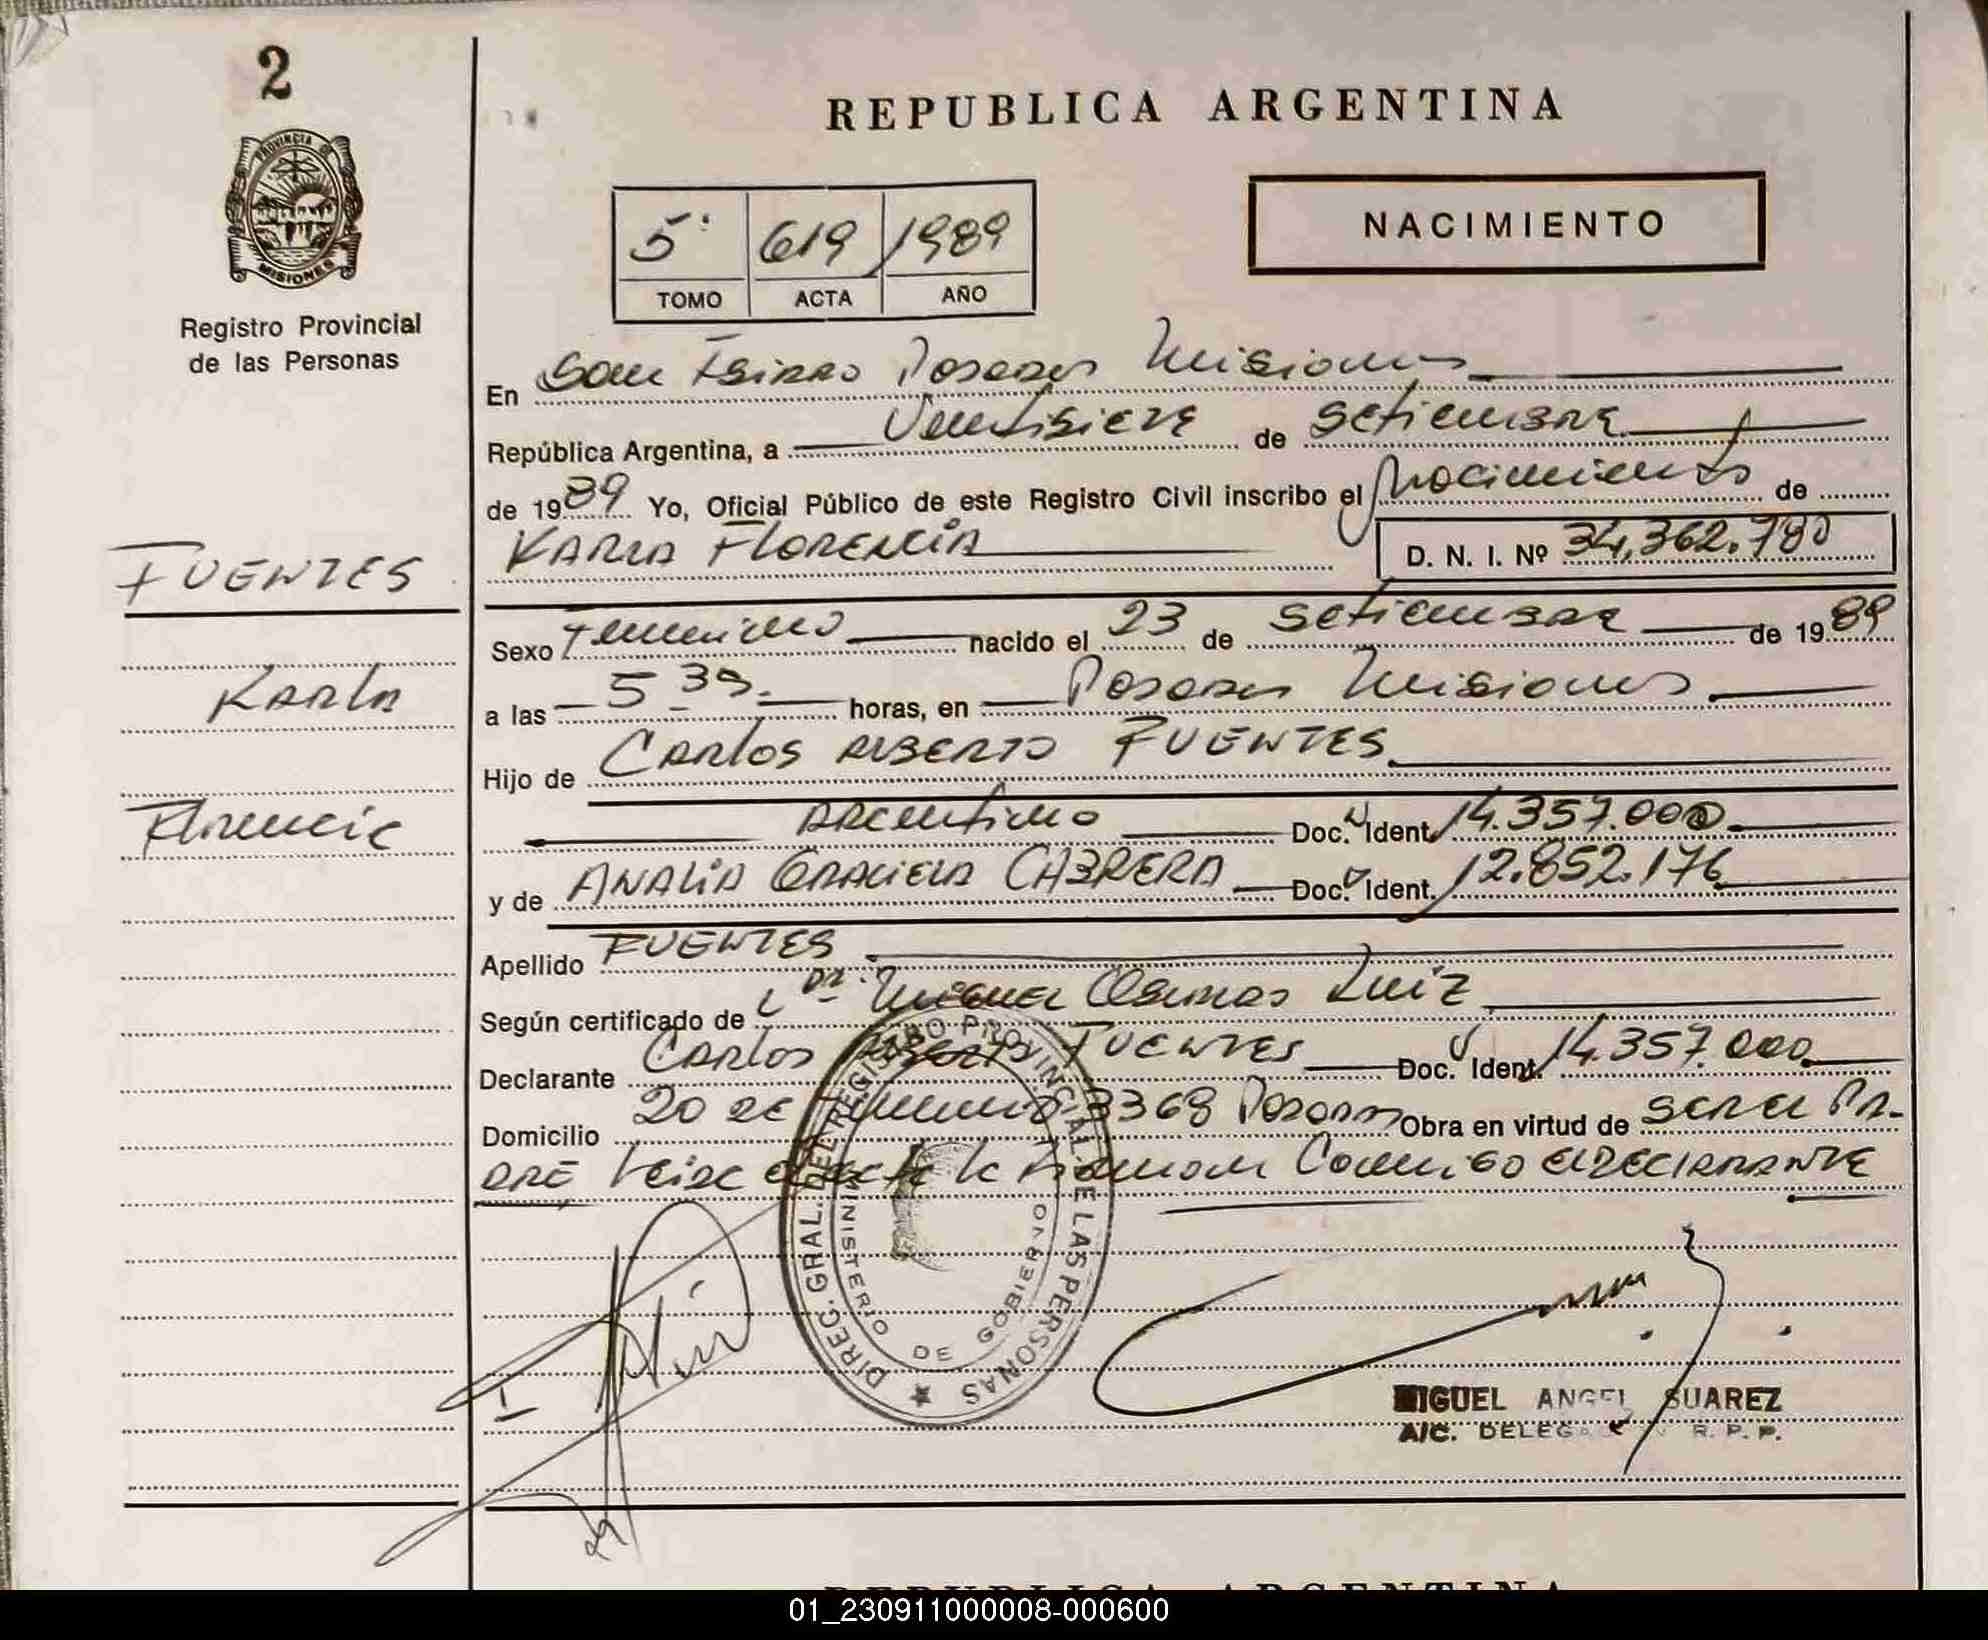 2
REPUBLICA ARGENTINA
PROVINCIA DE
MISIONES
Registro Provincial
de las Personas
NACIMIENTO
5º 619 1989
TOMO ACTA AÑO
En San Isidro Posadas Misiones
República Argentina, a Veintisiete de setiembre
de 1989 Yo, Oficial Público de este Registro Civil inscribo el Nacimiento de
KARLA FLORENCIA D. N. I. Nº 34.362.780
FUENTES
Karla
Florencia
Sexo Femenino nacido el 23 de setiembre de 1989
a las 5 39. horas, en Posadas Misiones
Hijo de Carlos Alberto FUENTES
argentino Doc. Ident. 14.357.000
y de ANALIA GRACIELA CABRERA Doc. Ident. 12.852.176
Apellido FUENTES
Según certificado de Dr. Miguel Luiz
Declarante Carlos Alberto FUENTES Doc. Ident. 14.357.000
Domicilio 20 de 3368 Posadas Obra en virtud de ser el Pa-
dre Leída el acta la firman Conmigo el declarante
DIREC. GRAL. DEL REGISTRO PROVINCIAL DE LAS PERSONAS
MINISTERIO DE GOBIERNO
MIGUEL ANGEL SUAREZ
A/C. DELEGACION R. P. P.
REPUBLICA ARGENTINA
01_230911000008-000600